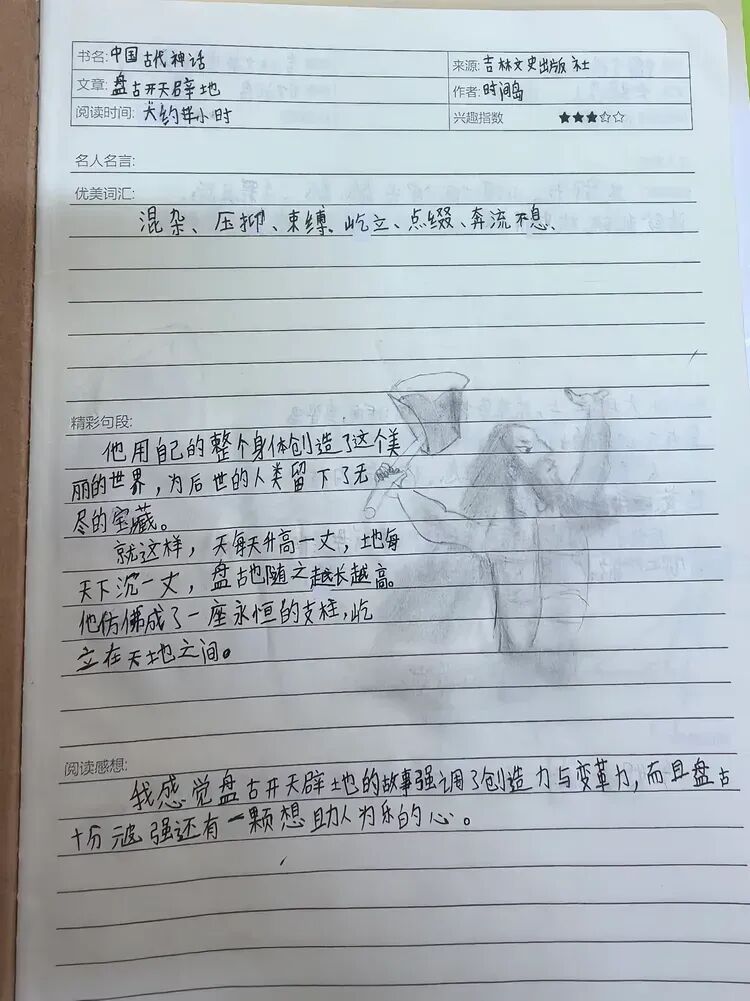 书名: 中国古代神话
来源: 吉林文史出版社
文章: 盘古开天辟地
作者: 时间岛
阅读时间: 大约半小时
兴趣指数 ★★★☆☆
名人名言:
优美词汇:
混杂、压抑、束缚、屹立、点缀、奔流不息、
精彩句段:
他用自己的整个身体创造了这个美
丽的世界,为后世的人类留下了无
尽的宝藏。
就这样,天每天升高一丈,地每
天下沉一丈,盘古也随之越长越高。
他仿佛成了一座永恒的支柱,屹
立在天地之间。
阅读感想:
我感觉盘古开天辟地的故事强调了创造力与变革力,而且盘古
十分 强还有一颗想助人为乐的心。